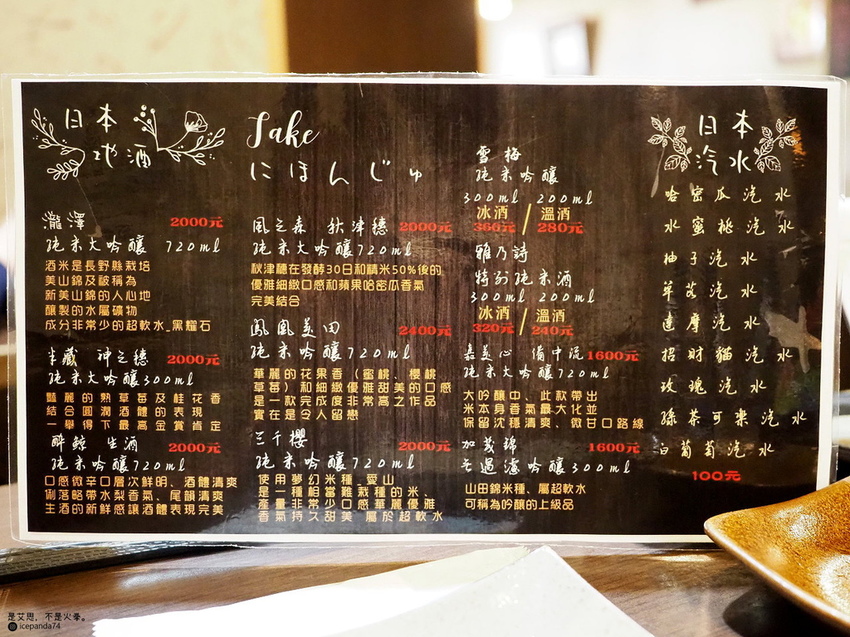 日本
地酒
瀧澤 2000元
純米大吟釀 720ml
酒米是長野縣栽培
美山錦及被稱為
新美山錦的人心地
釀製的水屬礦物
成分非常少的超軟水.黑耀石
半藏 神之穗 2000元
純米大吟釀300ml
豔麗的熟草莓及桂花香
結合圓潤酒體的表現
一舉得下最高金賞肯定
醉鯨 生酒 2000元
純米吟釀720ml
口感微辛口層次鮮明、酒體清爽
俐落略帶水梨香氣、尾韻清爽
生酒的新鮮感讓酒體表現完美
Sake
にほんじゅ
風之森 秋津穗 2000元
純米大吟釀720ml
秋津穗在發酵30日和精米50%後的
優雅細緻口感和蘋果哈密瓜香氣
完美結合
鳳凰美田 2400元
純米吟釀720ml
華麗的花果香(蜜桃、櫻桃
草莓)和細緻優雅甜美的口感
是一款完成度非常高之作品
實在是令人留戀
三千櫻 2000元
純米吟釀720ml
使用夢幻米種_愛山
是一種相當難栽種的米、
產量非常少口感華麗優雅
香氣持久甜美 屬於超軟水
雪梅
純米吟釀
300ml 200ml
冰酒/溫酒
366元 280元
雅乃詩
特別純米酒
300ml 200ml
冰酒/溫酒
320元 240元
嘉美心 備中流1600元
純米大吟釀720ml
大吟釀中、此款帶出
米本身香氣最大化並
保留沈穩清爽、微甘口路線
加茂錦 1600元
無過濾吟釀300ml
山田錦米種、屬超軟水
可稱為吟釀的上級品
日本
汽水
哈密瓜汽水
水蜜桃汽水
柚子汽水
草莓汽水
達摩汽水
招財貓汽水
玫瑰汽水
綠茶可樂汽水
白葡萄汽水
100元
是艾思，不是火拳。
icepanda74